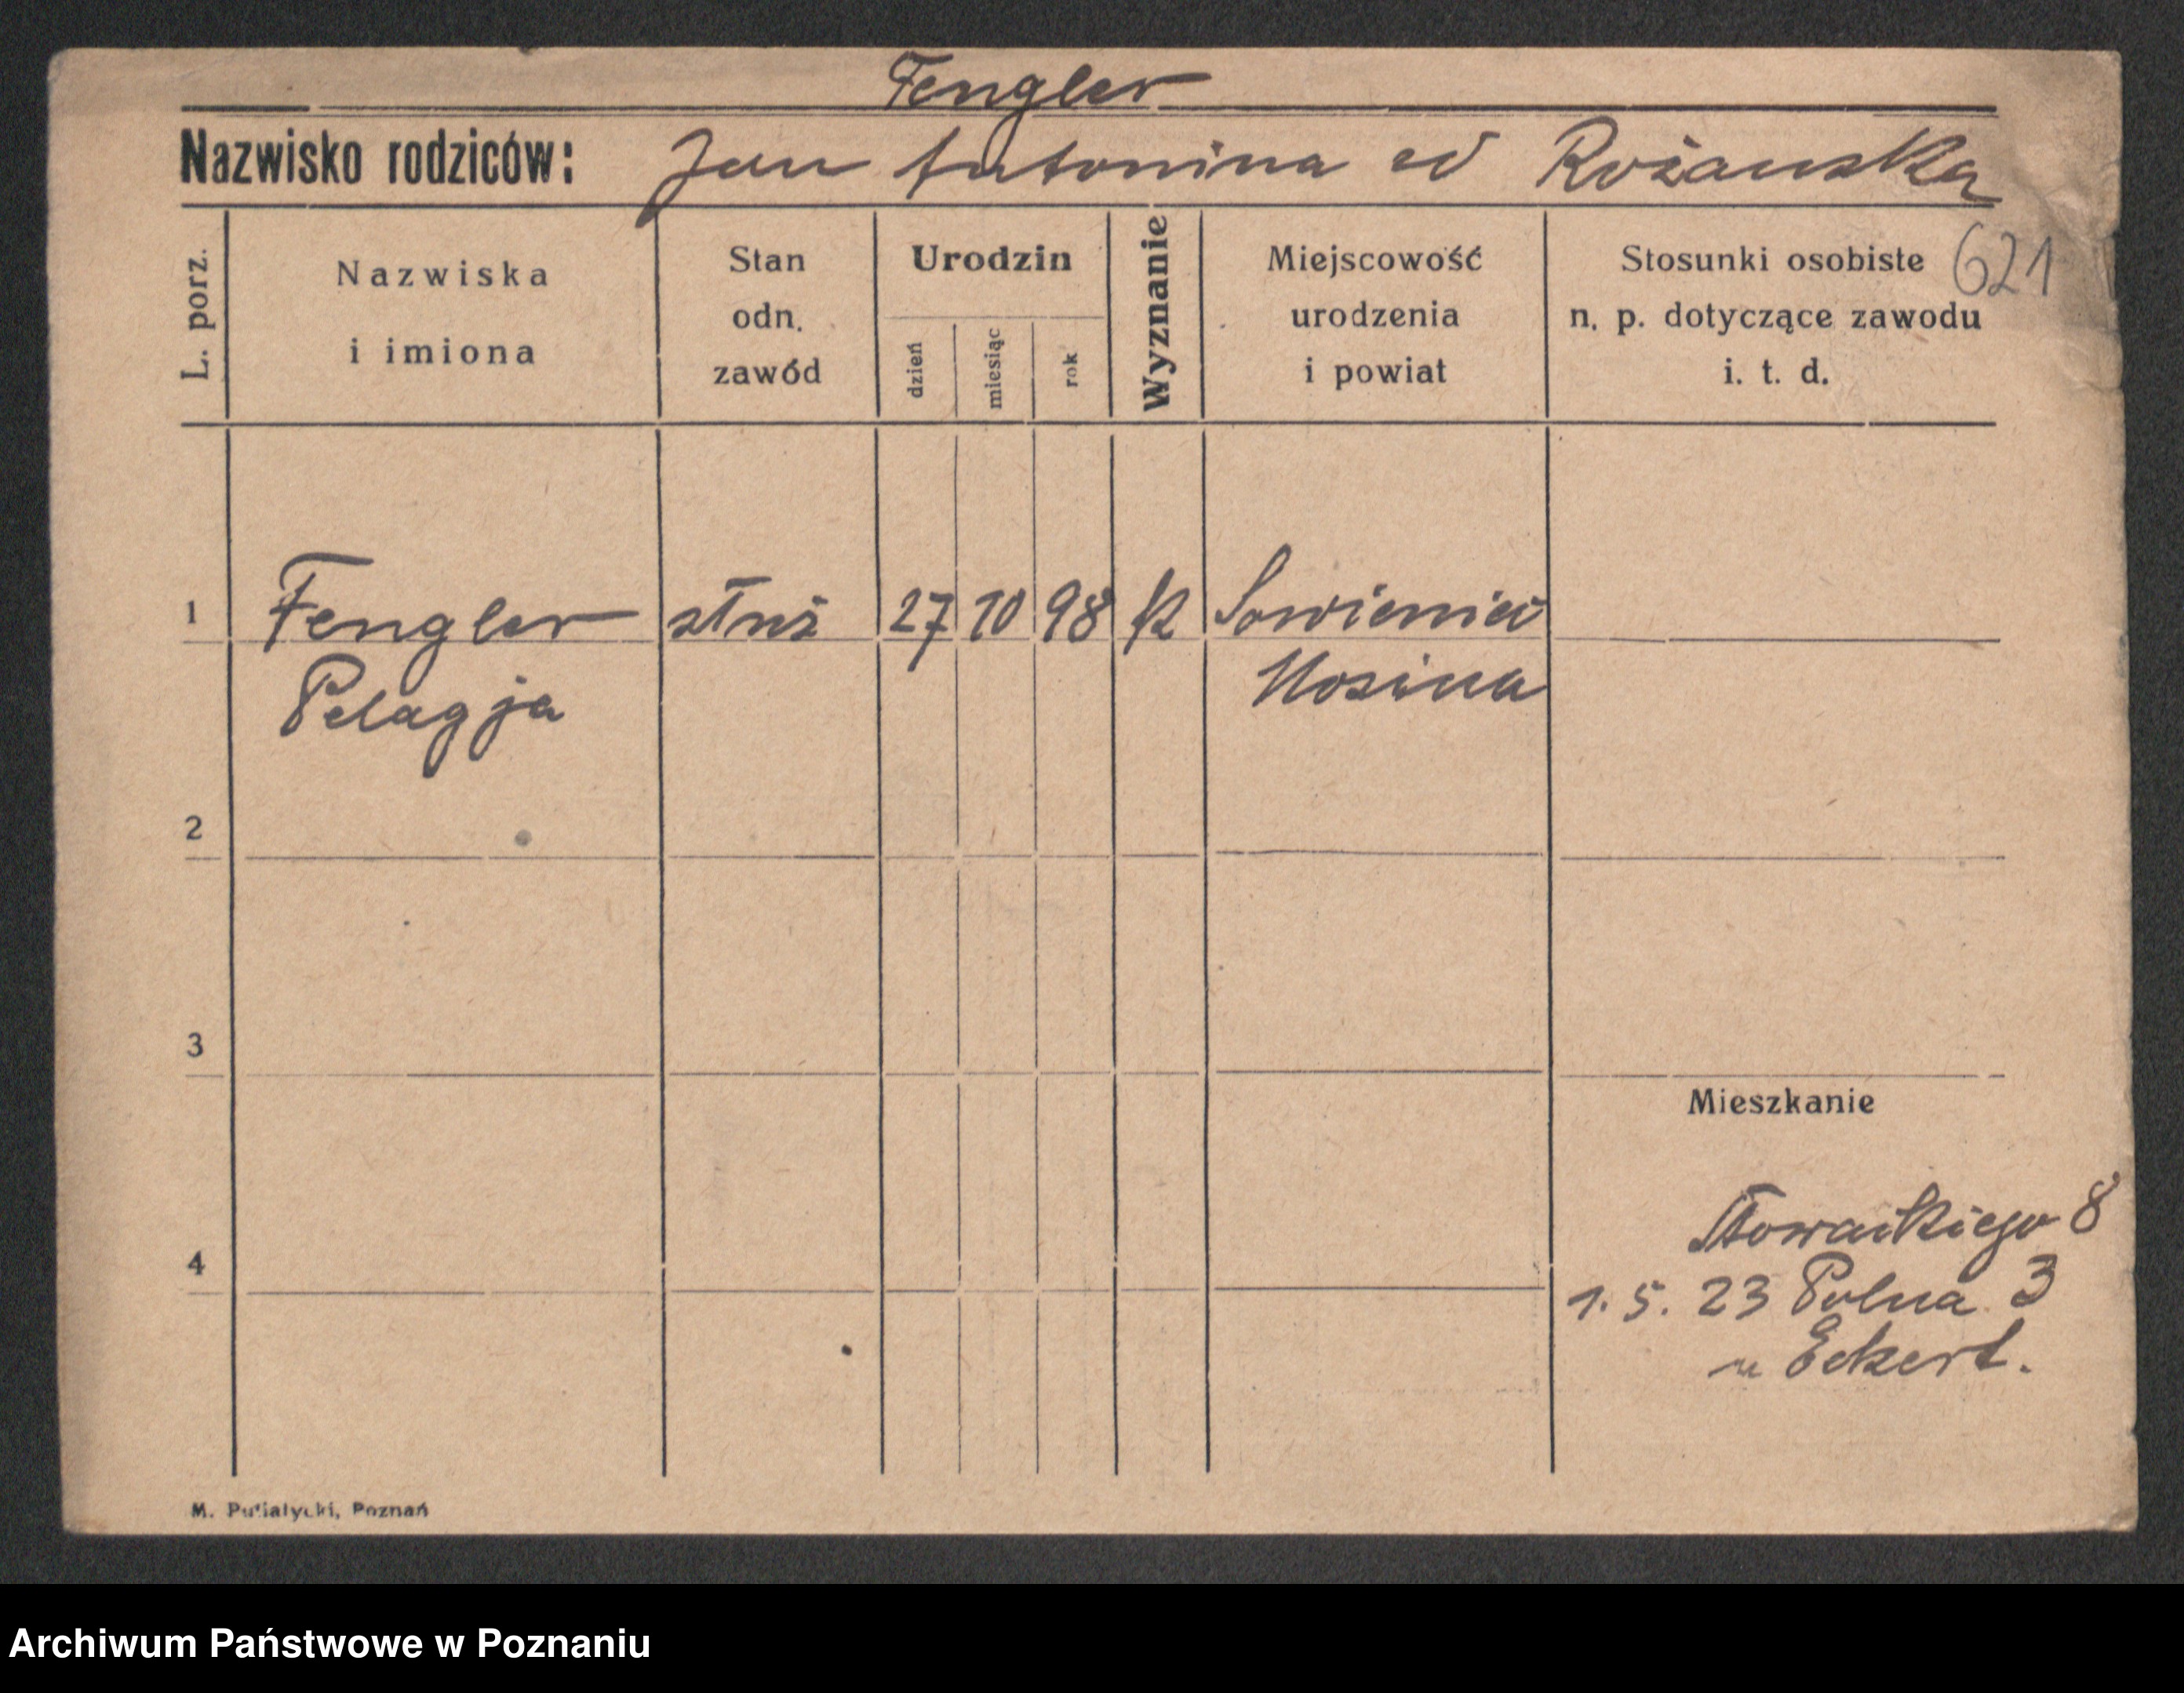 Fengler
Nazwisko rodziców: Jan Antonina od Rożanska
L. porz. Nazwiska i imiona Stan odn. zawód Urodzin dzień miesiąc rok Wyznanie Miejscowość urodzenia i powiat Stosunki osobiste n. p. dotyczące zawodu i. t. d.
621
1 Fengler służ 27 10 98 k Sowieniec
Pelagja Mosina
2
3
Mieszkanie
Słowackiego 8
4
1. 5. 23 Polna 3
u Eckert.
M. Putiatycki, Poznań
Archiwum Państwowe w Poznaniu